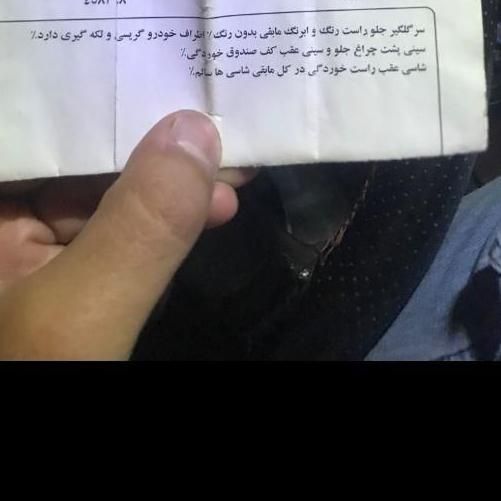 سر گلگیر جلو راست رنگ و ابرنگ مابقی بدون رنگ٪ اطراف خودرو گریس و لکه گیری دارد٪
سینی پشت چراغ جلو و سینی عقب کف صندوق خوردگی٪
شاسی عقب راست خوردگی در کل مابقی شاسی ها سالم٪